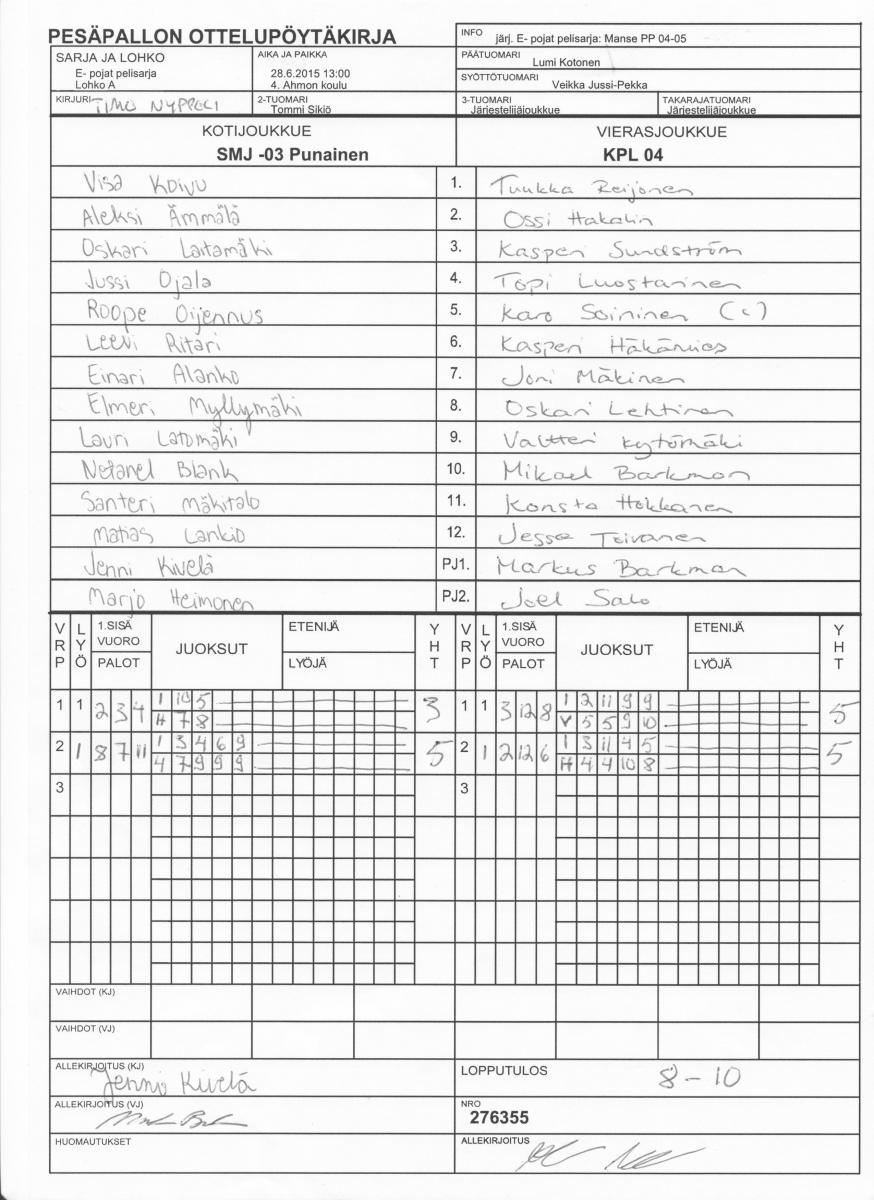 PESÄPALLON OTTELUPÖYTÄKIRJA
INFO järj. E- pojat pelisarja: Manse PP 04-05
SARJA JA LOHKO
E- pojat pelisarja
Lohko A
AIKA JA PAIKKA
28.6.2015 13:00
4. Ahmon koulu
PÄÄTUOMARI
Lumi Kotonen
SYÖTTÖTUOMARI
Veikka Jussi-Pekka
KIRJURI TIMO
2-TUOMARI
Tommi Sikiö
3-TUOMARI
Järjestelijäjoukkue
TAKARAJATUOMARI
Järjestelijäjoukkue
KOTIJOUKKUE
SMJ -03 Punainen
VIERASJOUKKUE
KPL 04
Visa Koivu 1. Tuukka Reijonen
Aleksi Ämmälä 2. Ossi
Oskari Laitamäki 3. Kasperi Sundström
Jussi Ojala 4. Topi Luostarinen
Roope Oijennus 5. Karo Soininen (c)
Leevi Ritari 6. Kasperi Häkämies
Einari Alanko 7. Joni Mäkinen
Elmeri Myllymäki 8. Oskari Lehtinen
Lauri Latomäki 9. Valtteri Kytömäki
Netanel Blank 10. Mikael Barkman
Santeri Mäkitalo 11. Konsta Hokkanen
Matias Lankio 12. Jesse Toivanen
Jenni Kivelä PJ1. Markus Barkman
Marjo Heimonen PJ2. Joel Salo
VRP LYÖ 1.SISÄ VUORO PALOT JUOKSUT ETENIJÄ LYÖJÄ YHT VRP LYÖ 1.SISÄ VUORO PALOT JUOKSUT ETENIJÄ LYÖJÄ YHT
1 1 2 3 4 1 10 5 3 1 1 3 12 8 1 2 11 9 9 5
H 7 8 V 5 5 9 10
2 1 8 7 11 1 3 4 6 9 5 2 1 2 12 6 1 3 11 4 5 5
4 7 9 9 9 H 4 4 10 8
3 3
VAIHDOT (KJ)
VAIHDOT (VJ)
ALLEKIRJOITUS (KJ)
Jenni Kivelä
LOPPUTULOS 8 - 10
ALLEKIRJOITUS (VJ)
NRO
276355
HUOMAUTUKSET
ALLEKIRJOITUS